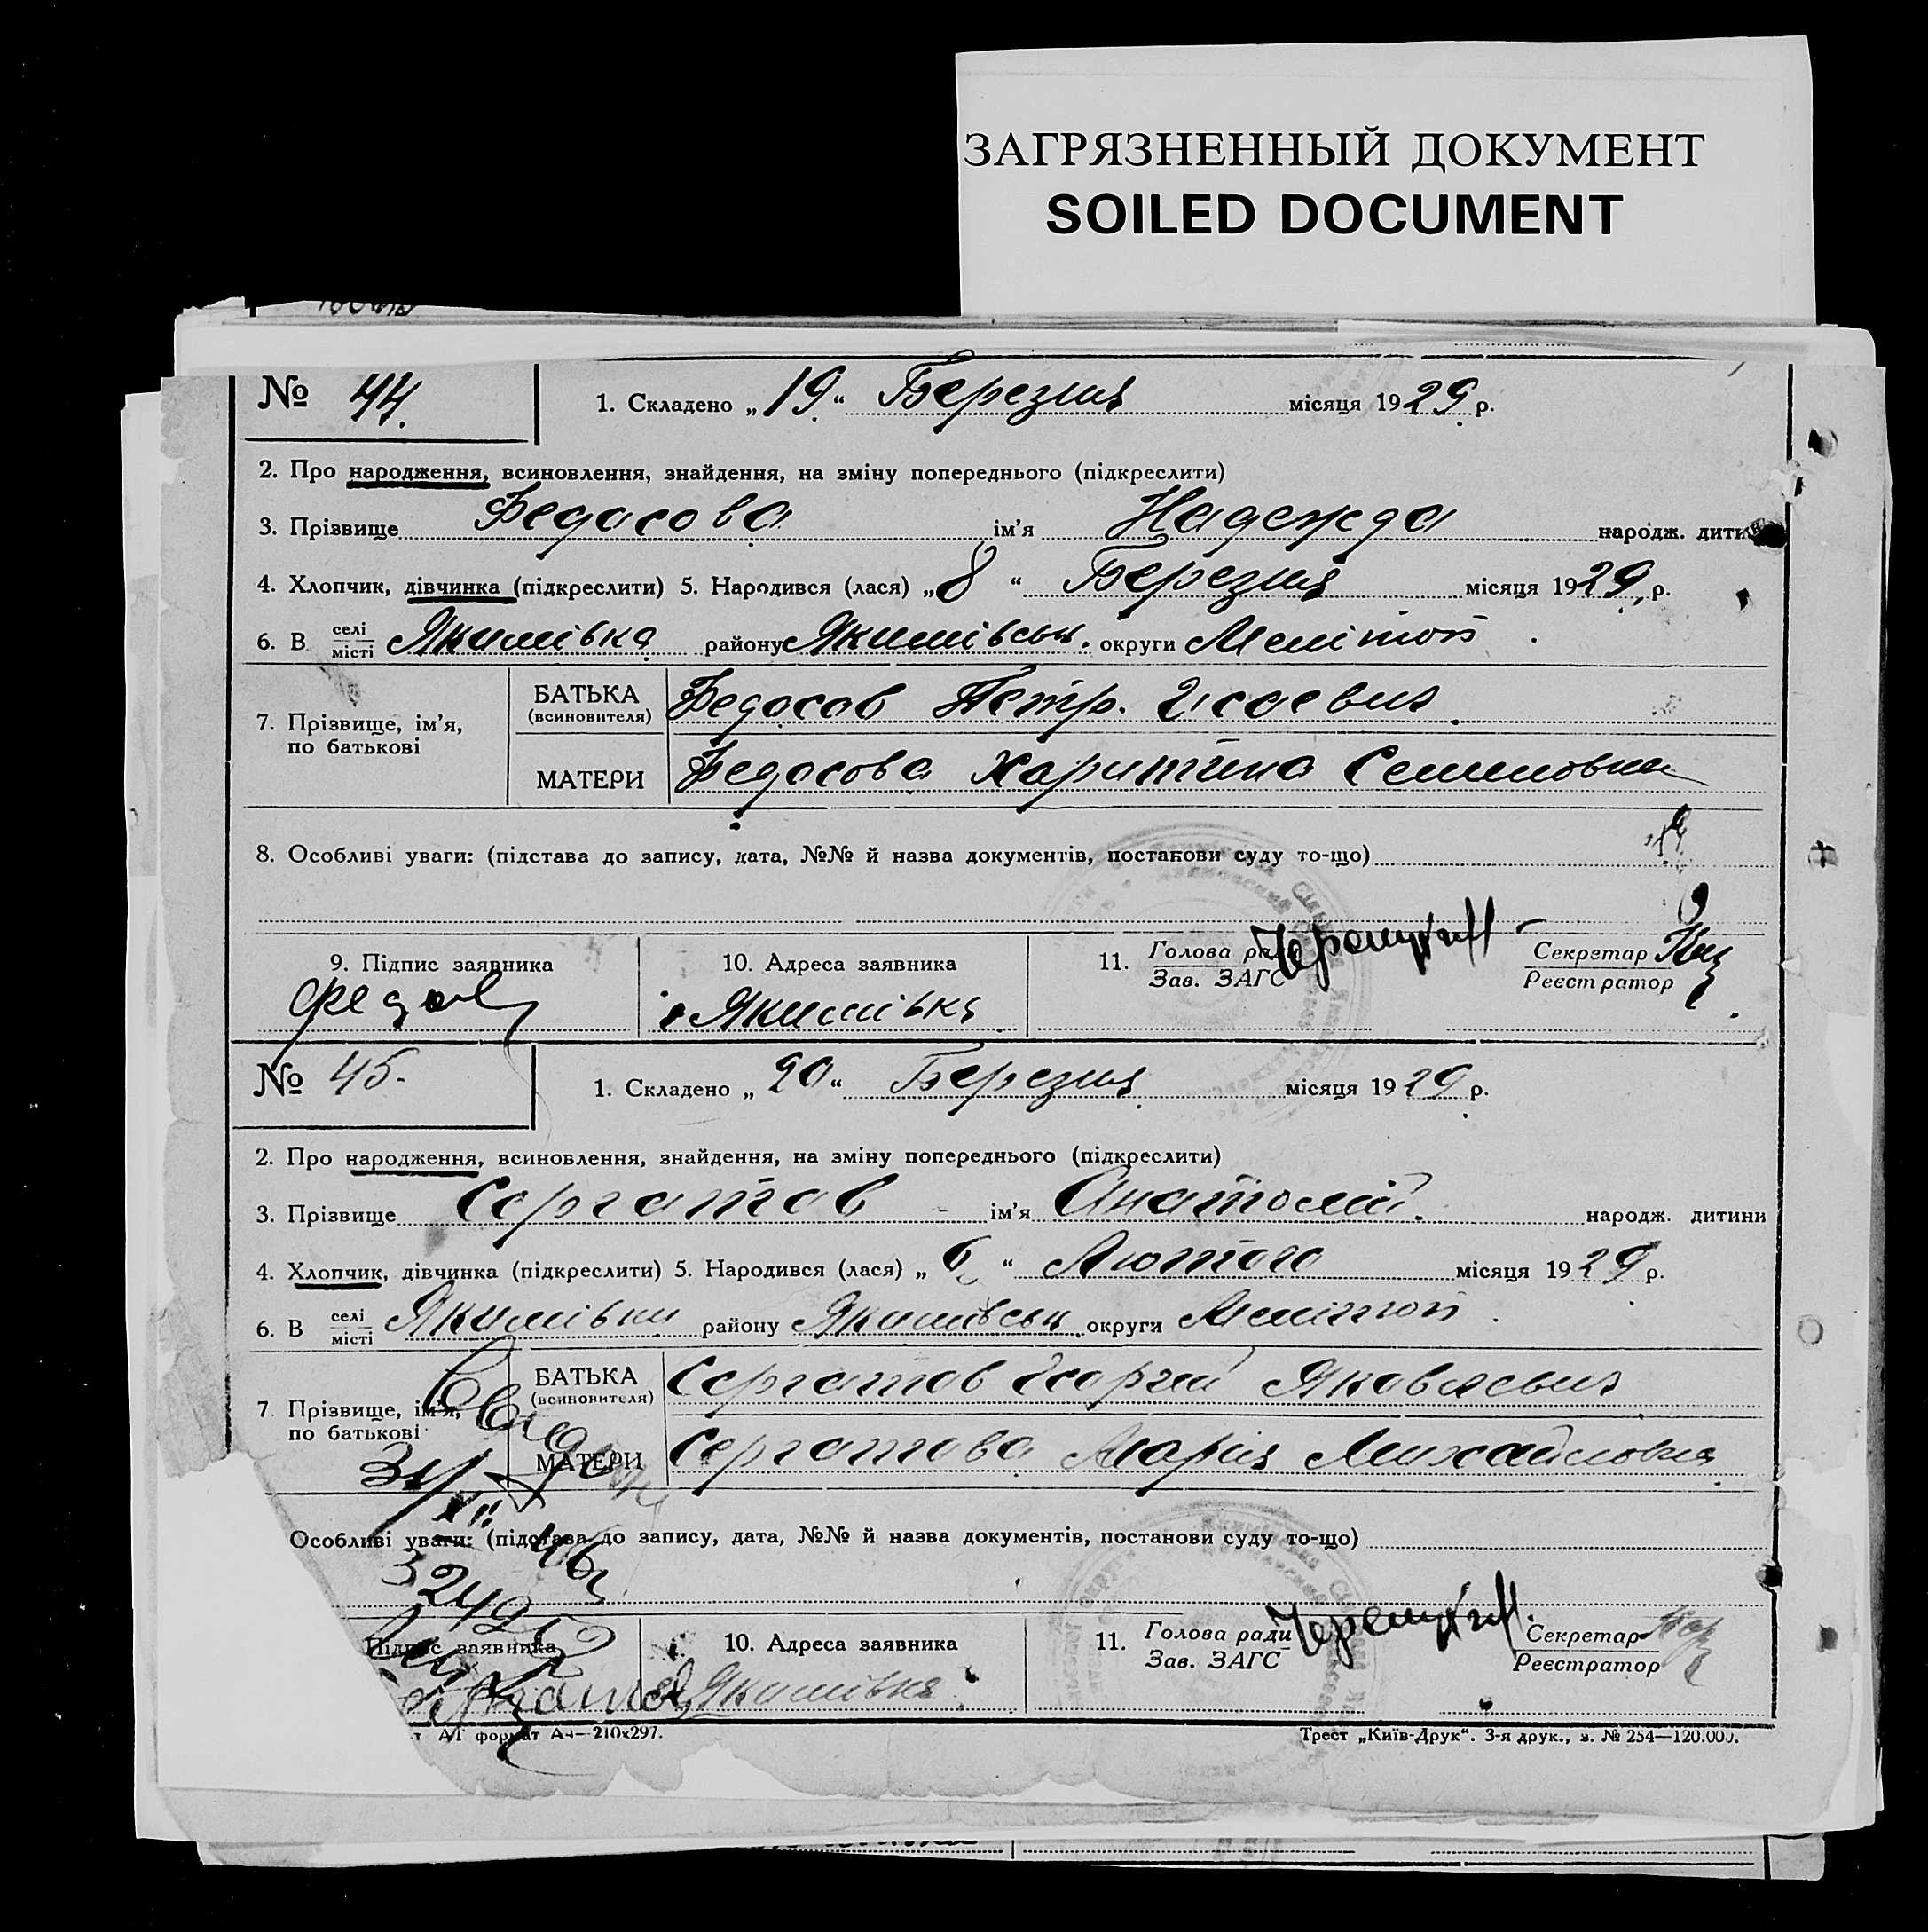 ЗАГРЯЗНЕННЫЙ ДОКУМЕНТ
SOILED DOCUMENT
№ 44.
1. Складено „19“ Березня місяця 1929 р.
2. Про народження, всиновлення, знайдення, на зміну попереднього (підкреслити)
3. Прізвище Федосова ім’я Надежда народж. дитини
4. Хлопчик, дівчинка (підкреслити) 5. Народився (лася) „8“ Березня місяця 1929 р.
6. В селі місті Якимівка району Якимівськ. округи Мелітоп
7. Прізвище, ім’я, по батькові
БАТЬКА (всиновителя) Федосов Петр. Исаевич
МАТЕРИ Федосова Харитина Семеновна
8. Особливі уваги: (підстава до запису, дата, №№ й назва документів, постанови суду то-що)
9. Підпис заявника
10. Адреса заявника
Якимівка
11. Голова ради
Зав. ЗАГС
Секретар
Реєстратор
№ 45.
1. Складено „20“ Березня місяця 1929 р.
2. Про народження, всиновлення, знайдення, на зміну попереднього (підкреслити)
3. Прізвище Сергатов ім’я Анатолій. народж. дитини
4. Хлопчик, дівчинка (підкреслити) 5. Народився (лася) „6“ Лютого місяця 1929 р.
6. В селі місті Якимівки району Якимівськ. округи Мелітоп
7. Прізвище, ім’я, по батькові
БАТЬКА (всиновителя) Сергатов Георгий Яковлевич
МАТЕРИ Сергатова Марія Михайловна
Особливі уваги: (підстава до запису, дата, №№ й назва документів, постанови суду то-що)
Підпис заявника
10. Адреса заявника
Якимівка
11. Голова ради
Зав. ЗАГС
Секретар
Реєстратор
формат А4—210х297.
Трест „Київ-Друк“. 3-я друк., з. № 254—120.000.